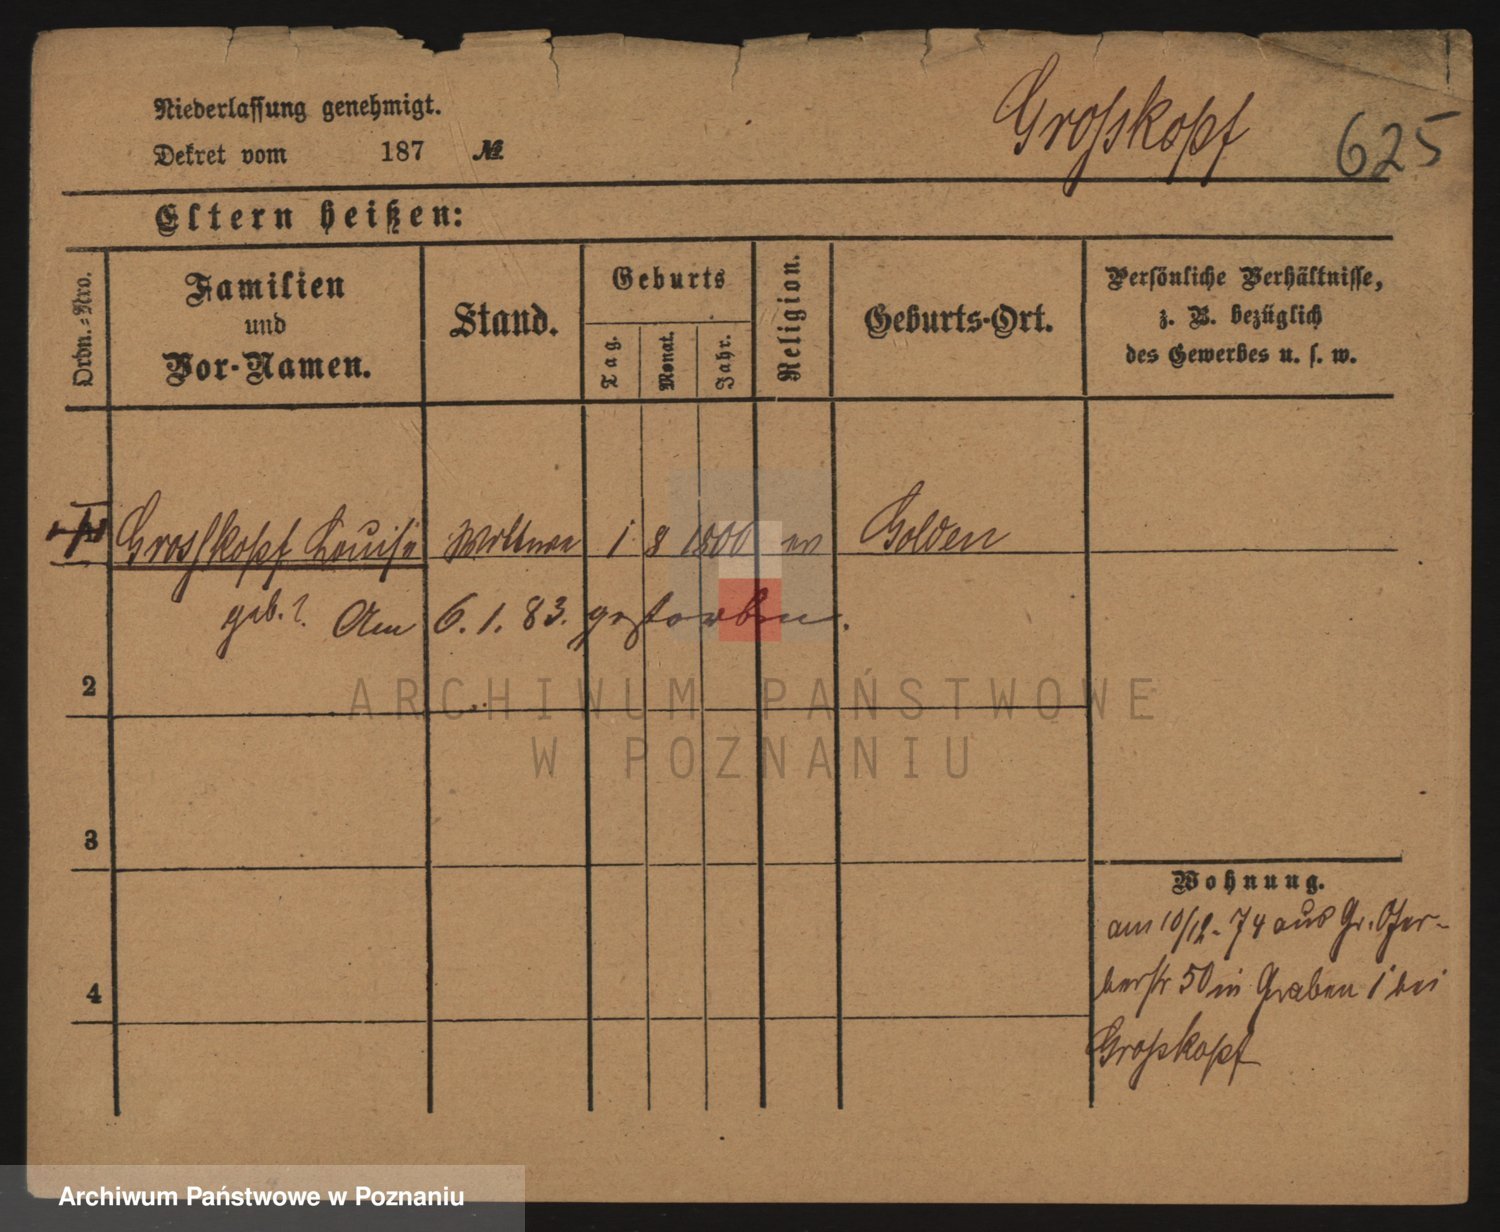 Niederlassung genehmigt.
Dekret vom 187 №
Grosskopf 625
Eltern heißen:
Ordn.-Nro.
Familien
und
Vor-Namen.
Stand.
Geburts
Tag.
Monat.
Jahr.
Religion.
Geburts-Ort.
Persönliche Verhältnisse,
z. B. bezüglich
des Gewerbes u. s. w.
Grosskopf Louise Wittwe 1 8 1800 ev Golden
geb. ? Am 6. 1. 83. gestorben.
2
3
4
Wohnung.
am 10/12. 74 aus Gr. Ger-
berstr 50 in Graben 1 bei
Grosskopf
ARCHIWUM PAŃSTWOWE
W POZNANIU
Archiwum Państwowe w Poznaniu